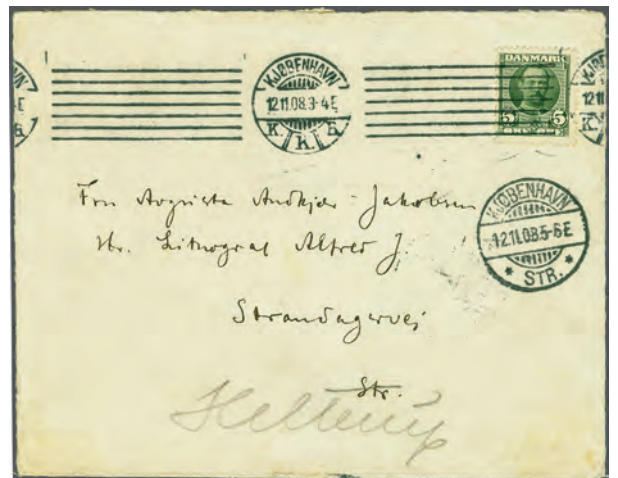 KJØBENHAVN
12.11.08.3-4E
K. K. B.
DANMARK
5 5
KJØBENHAVN
12.11.08.5-6E
* STR. *
Fru Augusta Andkjær-Jakobsen
Hr. Litograf Alfred J.
Strandagervej
Str.
Hellerup